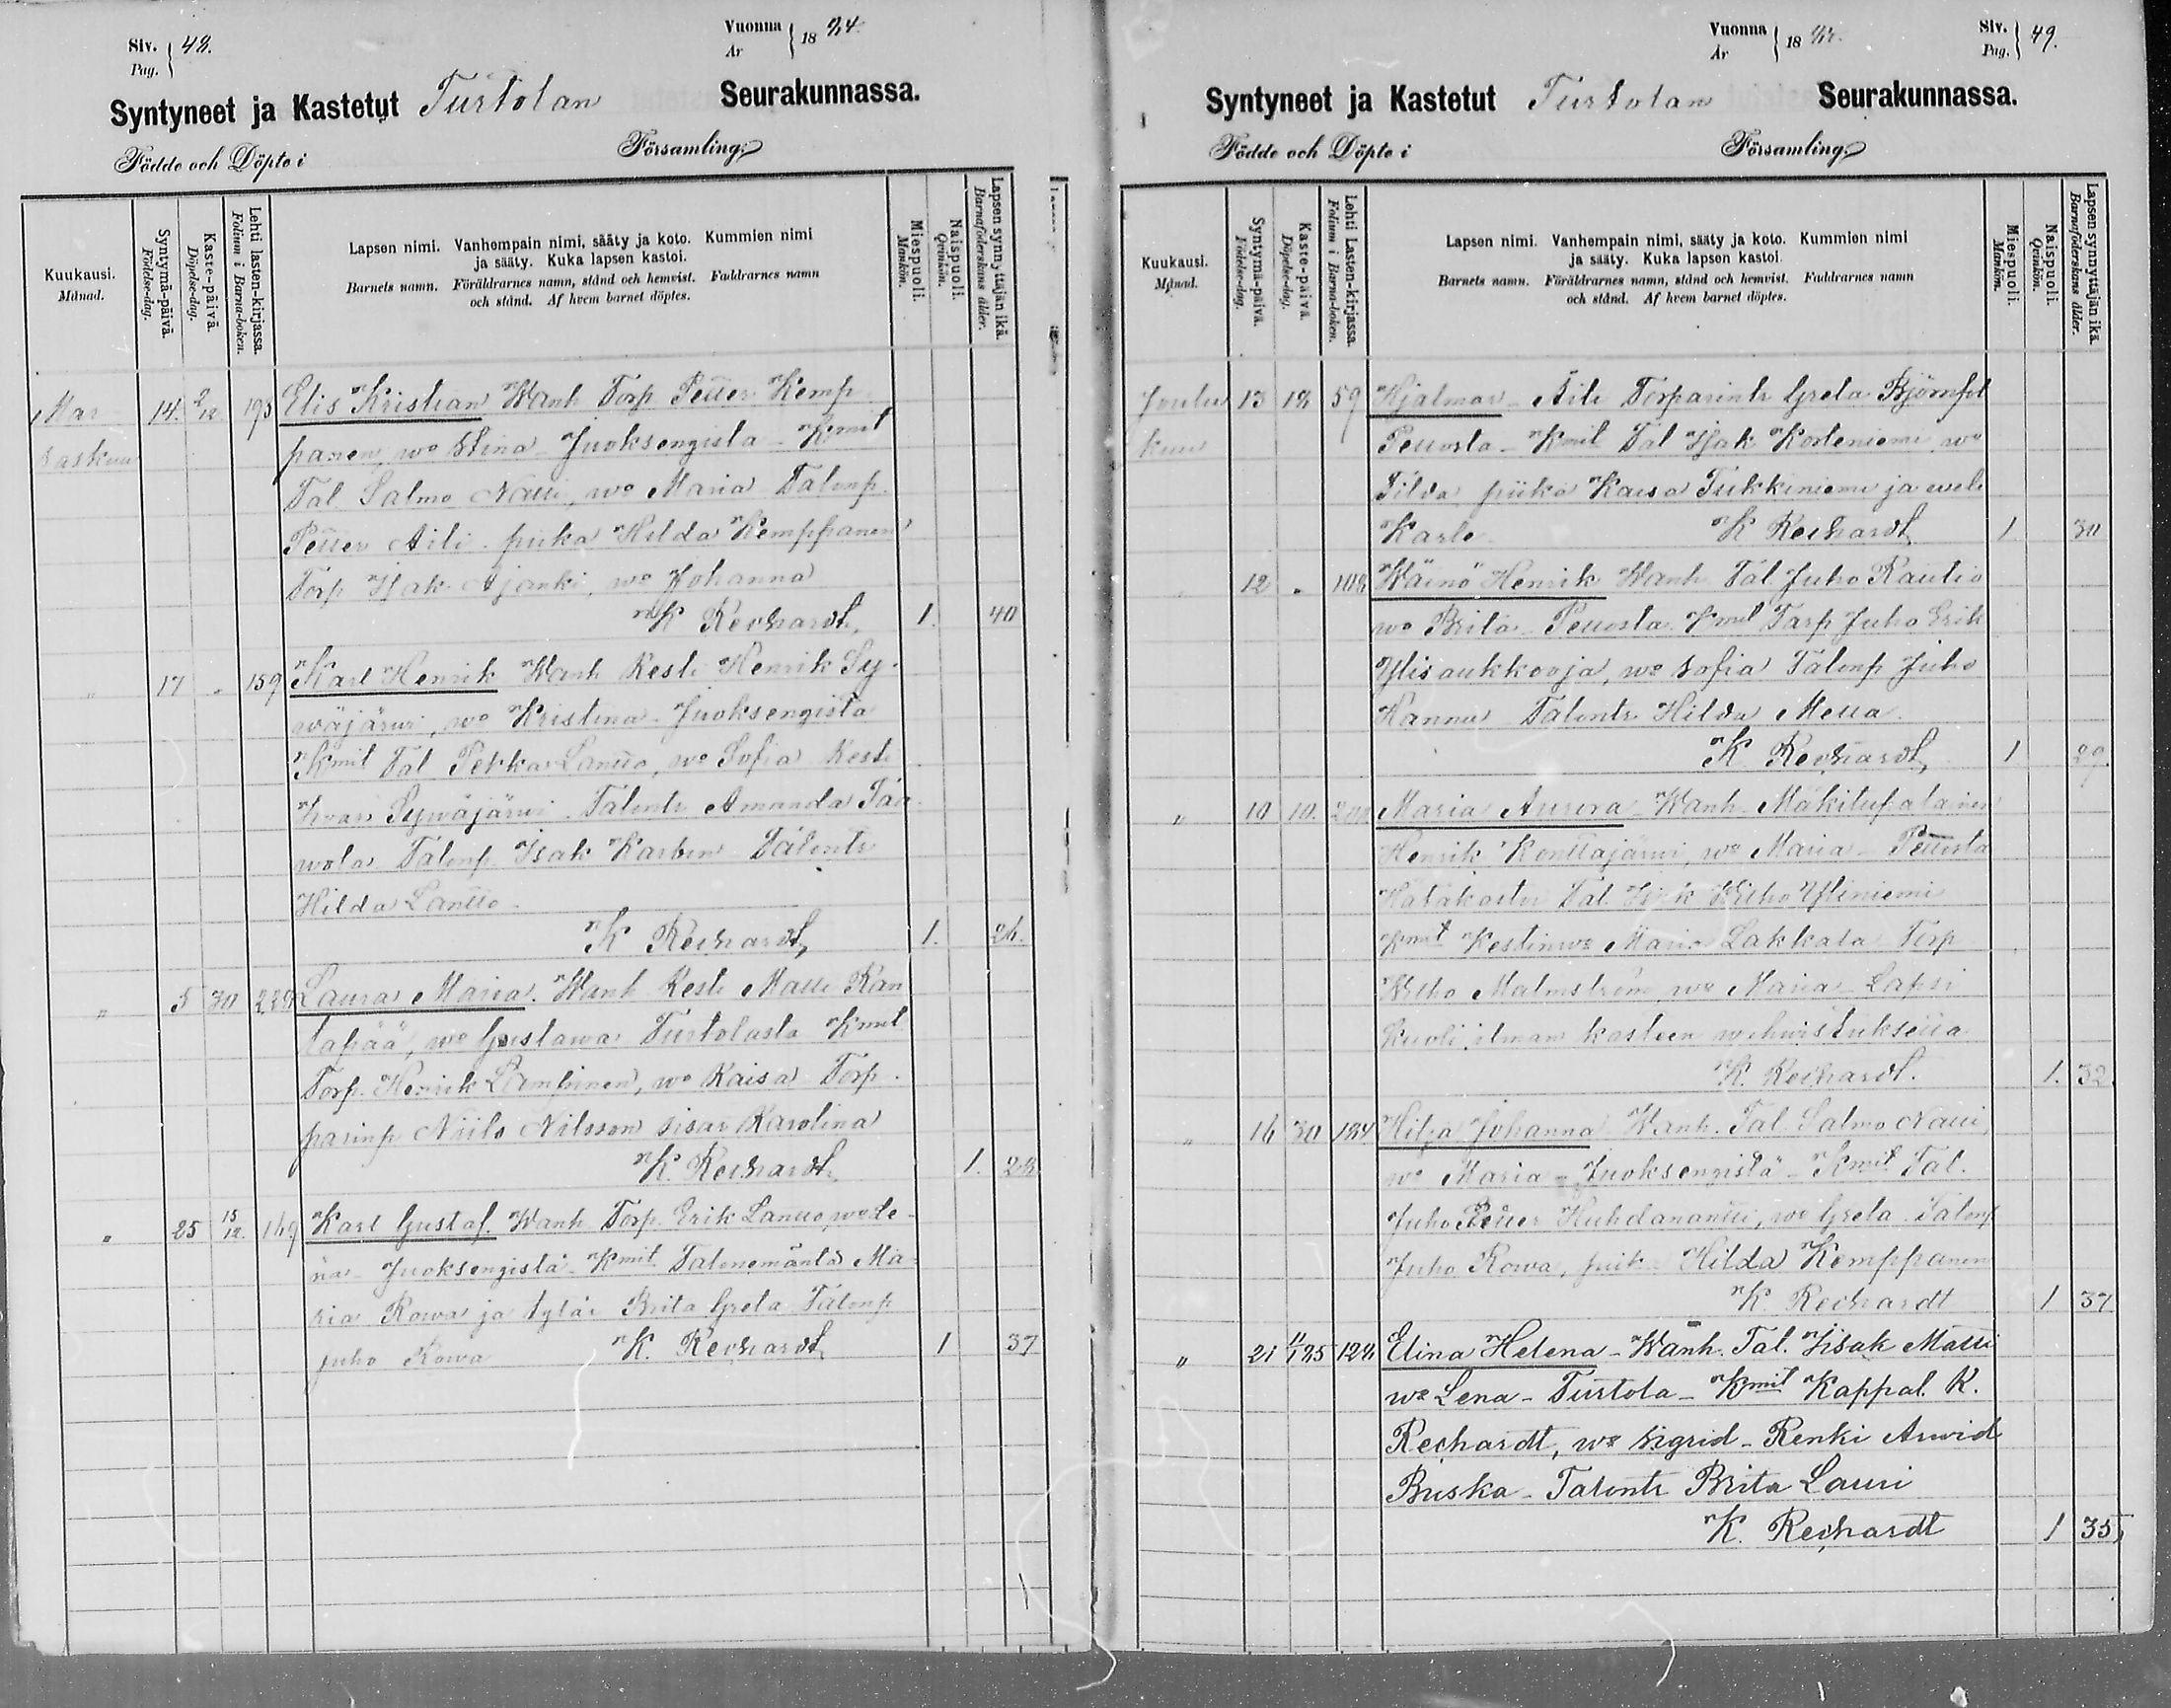 Siv. 48.
Pag.
Vuonna 1884.
År
Syntyneet ja Kastetut Turtolan Seurakunnassa.
Födde och Döpte i Församling.
Kuukausi.
Månad.
Syntymä-päivä.
Födelse-dag.
Kaste-päivä.
Döpelse-dag.
Lehti lasten-kirjassa.
Folium i Barna-boken.
Lapsen nimi. Vanhempain nimi, sääty ja koto. Kummien nimi
ja sääty. Kuka lapsen kastoi.
Barnets namn. Föräldrarnes namn, stånd och hemvist. Faddrarnes namn
och stånd. Af hvem barnet döptes.
Miespuoli.
Mankön.
Naispuoli.
Qvinkön.
Lapsen synnyttäjän ikä.
Barnaföderskans ålder.
Mar 14. 2/12 193 Elis Kristian Wanh Torp Petter Kemp
raskuu panen, wo Stina Juoksengista - Kmit
Tal. Salmo Natti, wo Maria Talonp.
Petter Aili. piika Hilda Kemppanen
Torp Isak Ajanki, wo Johanna
K Rechardt, 1. 40
" 17 " 159 Karl Henrik Wanh Kesti Henrik Sy-
wäjärwi, wo Kristina - Juoksengista
Kmit Tal Pekka Lantto, wo Sofia Kesti
Iwari Sywäjärwi Talontr Amanda Taa-
wola Talonp. Isak Karben Talontr
Hilda Lantto.
K Rechardt, 1. 26.
" 5 30 Laura Maria. Wanh Kesti Matti Ran
tapää, wo Gustawa Turtolasta Kmit
Torp. Henrik Lampinen, wo Kaisa Torp.
parinp Niilo Nilsson sisar Karolina
K. Rechardt, 1. 28
" 25 15/12. 169 Karl Gustaf. Wanh Torp. Erik Lantto, wo Le-
na - Juoksengista - Kmit Talonemäntä Ma-
ria Rowa ja tytär Brita Greta Talonp
Juho Rowa K. Rechardt 1 37
Vuonna 1884.
År
Siv. 49.
Pag.
Syntyneet ja Kastetut Turtolan Seurakunnassa.
Födde och Döpte i Församling.
Kuukausi.
Månad.
Syntymä-päivä.
Födelse-dag.
Kaste-päivä.
Döpelse-dag.
Lehti Lasten-kirjassa.
Folium i Barna-boken.
Lapsen nimi. Vanhempain nimi, sääty ja koto. Kummien nimi
ja sääty. Kuka lapsen kastoi.
Barnets namn. Föräldrarnes namn, stånd och hemvist. Faddrarnes namn
och stånd. Af hvem barnet döptes.
Miespuoli.
Mankön.
Naispuoli.
Qvinkön.
Lapsen synnyttäjän ikä.
Barnaföderskans ålder.
Joulu 13 18 59 Hjalmar - Äiti Torparintr Greta Björnfot
kuu Pellosta - Kmit Tal Isak Korteniemi wo
Tilda, piika Kaisa Tukkiniemi ja weli
Karlo K Rechardt 1 30
" 12 " 108 Wäinö Henrik Wanh Tal Juho Rautio
wo Brita - Pellosta. Kmit Torp Juho Erik
Ylisaukkooja, wo Sofia Talonp Juho
Kannus Talontr Hilda Mella.
K. Rechardt 1 29.
" 10 10. Maria Aurora - Wanh. Mäkitupalainen
Henrik Konttajärwi, wo Maria - Pellosta
Hätäkastoi Tal. Wilho Yliniemi
Kmit Kestinwo Maria Lakkala Torp
Wilho Malmström wo Maria - Lapsi
kuoli ilman kasteen wahwistuksetta
K. Rechardt. 1. 32.
" 16 30 184 Hilja Johanna Wanh. Tal. Salmo Natti,
wo Maria - Juoksengista - Kmit Tal.
Juho Petter Huhdanantti, wo Greta. Talonp
Juho Rowa, piik Hilda Kemppanen
K. Rechardt 1 37
" 21 128 Elina Helena - Wanh. Tal. Iisak Matti
wo Lena - Turtola - Kmit Kappal. K.
Rechardt, wo Sigrid - Renki Arwid
Buska - Talontr Brita Lauri
K. Rechardt 1 35,